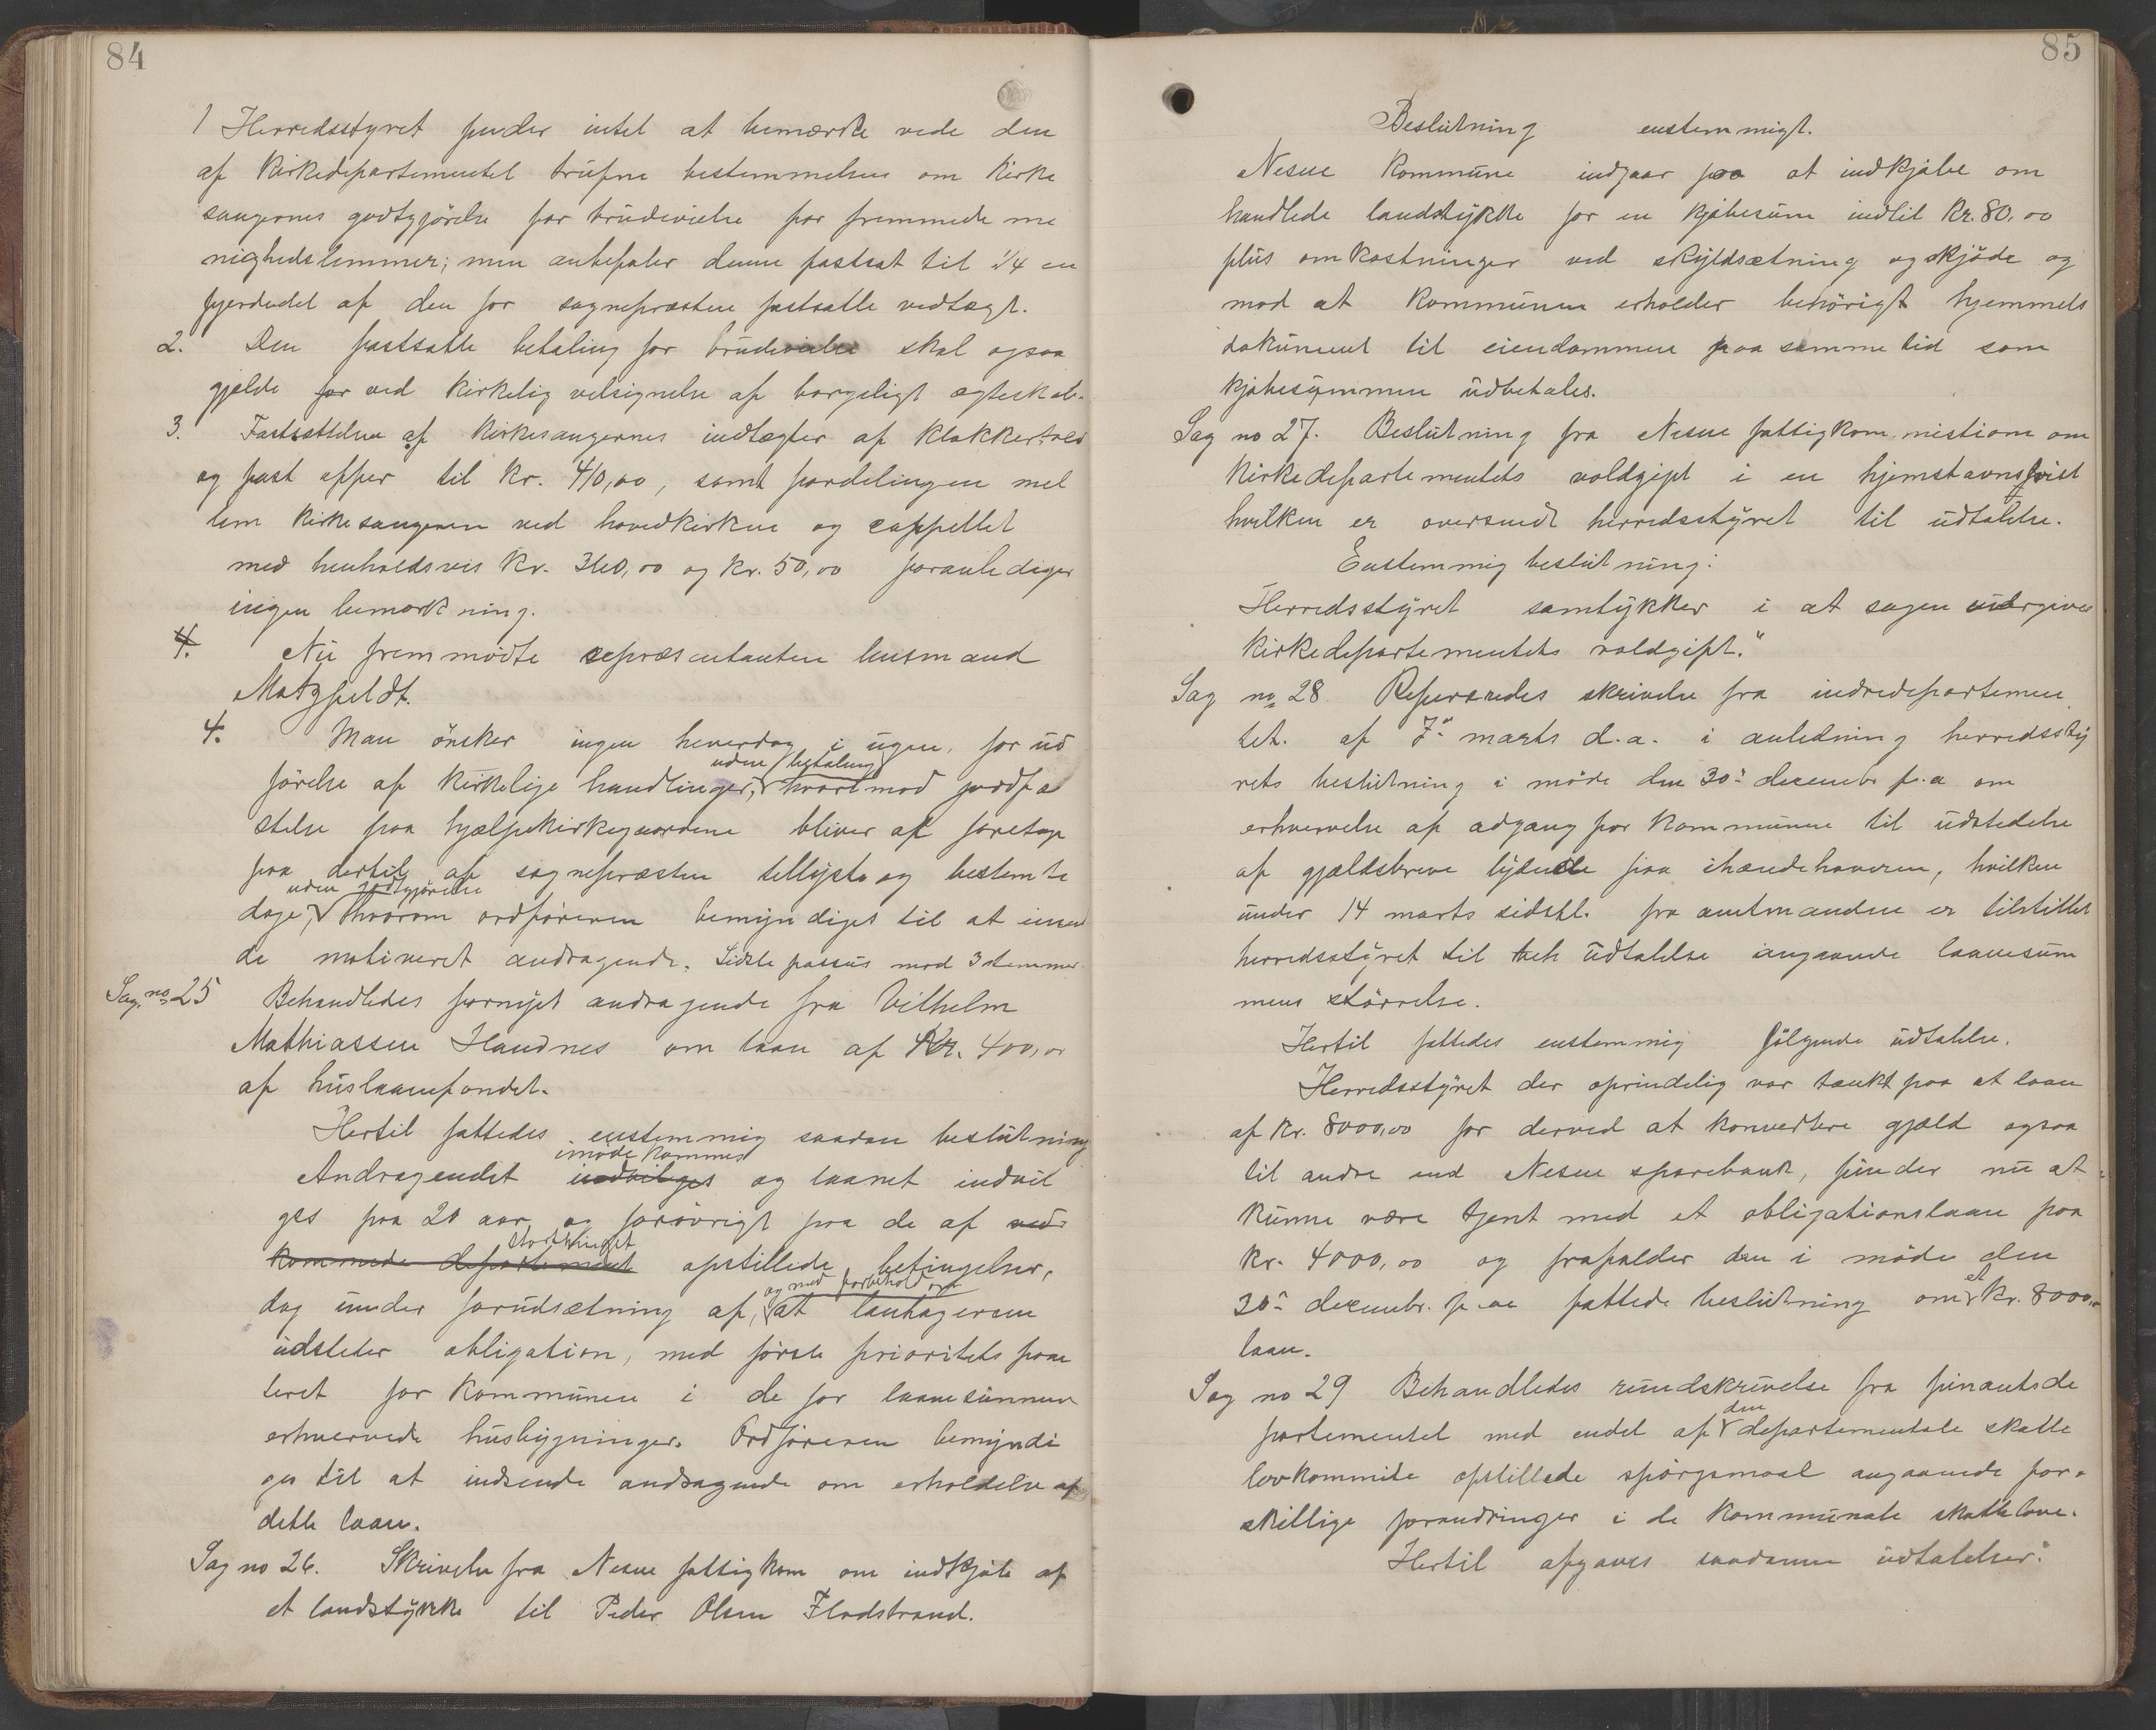 84
1 Herredsstyret finder intet at bemærke vede den
af Kirkedepartementet trufne bestemmelser om Kirke
sangernes godtgjörelse for brudevielse for fremmede me
nighedslemmer; men anbefaler denne fastsat til 1/4 en
fjerdedel af den for sognepræsten fastsatte vedtægt.
2. Den fastsatte betaling for brudevielse skal ogsaa
gjelde for ved Kirkelig velsignelse af borgeligt ægteskab.
3. Fastsettelsen af Kirkesangernes indtægter af Klokkertold
og fast offer til Kr. 410,00, samt fordelingen mel
lem Kirkesangeren ved hovedkirken og cappellet
med henholdsvis Kr. 360,00 og Kr. 50,00 foranlediger
ingen bemærkning.
4. Nu fremmödte repræsentanten husmand
Matzfeldt.
4. Man önsker ingen hverdag i ugen, for ud
förelse af Kirkelige handlinger, uden betaling hvorimod jordfæ
stelse paa hjælpekirkegaardene bliver at foretage
paa dertil af sognepræsten tillyste og bestemte
dage, uden godtgjörelse hvorom ordföreren bemyndiges til at insen
de motiveret andragende. Sidste passus mod 3 stemmer.
Sag no 25 Behandledes fornyet andragende fra Vilhelm
Mathiassen Handnes om laan af Kr. 400,00
af huslaanefondet.
Hertil fattedes enstemmig saadan beslutning
Andragendet indvilges imödekommes og laanet indvil
ges paa 20 aar, og forövrigt paa de af ved
kommende departement storthinget opstillede betingelser,
dog under forudsætning af, og med forbehold om at lantageren
udsteder obligation, med förste prioritets pan
teret for Kommunen i de for laanesummen
erhvervede husbygninger. Ordföreren bemyndi
ges til at indsende andragende om erholdelse af
dette laan.
Sag no 26. Skrivelse fra Nesne fattigkom om indkjöb af
et landstykke til Peder Olsen Flodstrand.
85
Beslutning enstemmigt.
Nesne Kommune indgaar paa at indkjöbe om
handlede landstykke for en kjöbesum indtil Kr. 80,00
plus omkostninger ved skyldsætning og skjöde og
mod at Kommunen erholder behörigt hjemmels
dokument til eiendommen paa samme tid som
kjöbesummen udbetales.
Sag no 27. Beslutning fra Nesne fattigkommistion om
Kirkedepartementets voldgift i en hjemstavnstvist
hvilken er oversendt herredsstyret til udtalelse.
Enstemmig beslutning:
Herredsstyret samtykker i at sagen undergives
Kirkedepartementets voldgift."
Sag no 28 Refereredes skrivelse fra indredepartemen
tet. af 7de marts d.a. i anledning herredssty
rets beslutning i möde den 30te decembr f.a om
erhvervelse af adgang for Kommunen til udstedelse
af gjældsbreve lydende paa ihændehaveren, hvilken
under 14 marts sidstl. fra amtmanden er tilstillet
herredsstyret til udtalelse angaaende laanesum
mens störrelse.
Hertil fattedes enstemmig fölgende udtalelse.
Herredsstyret der oprindelig var tænkt paa et laan
af Kr. 8000,00 for derved at konvertere gjæld ogsaa
til andre end Nesne sparebank, finder nu at
kunne være tjent med et obligationslaan paa
Kr. 4000,00 og frafalder den i möde den
30te decembr. f.a fattede beslutning om et Kr. 8000,00
laan.
Sag no 29 Behandledes rundskrivelse fra finantsde
partementet med endel af den departementale skatte
lovkommite opstillede spörgsmaal angaaende for-
skillige forandringer i de kommunale skattelove.
Hertil afgaves saadanne udtalelser: